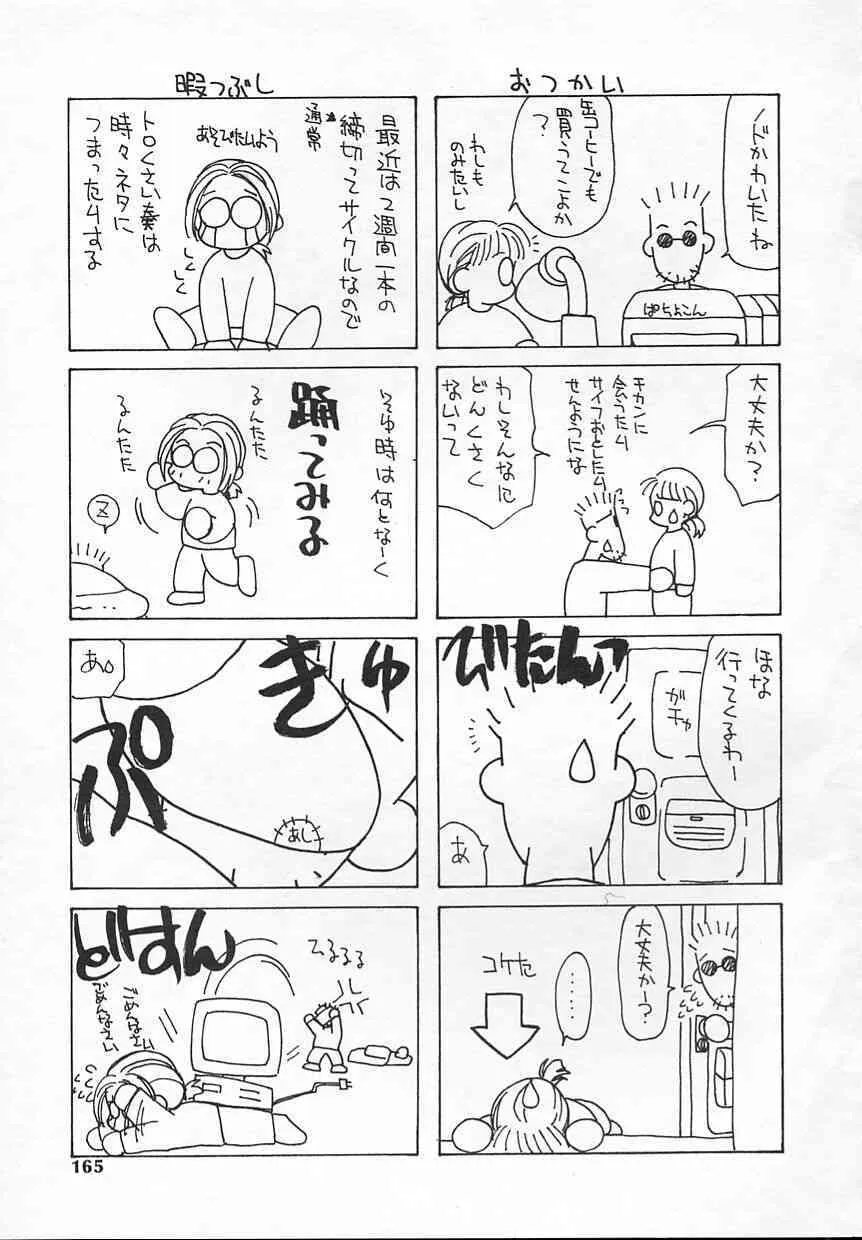 おつかい
ノドかわいたね
缶コーヒーでも
買うてこよか
？
わしも
のみたいし
ぱそよこん
大丈夫か？
チカンに
会うたり
サイフおとしたり
せんようにな
わしそんなに
どんくさく
ないって
ほな
行ってくるわー
ガチャ
びたんっ
あ
大丈夫かー？
……
コケた
暇つぶし
最近は2週間一本の
締切ってサイクルなので
通常
トロくさい奏は
時々ネタに
つまったりする
あそびたいよう
しくしく
そゆ時は何となーく
踊ってみる
るんたた
るんたた
Z
きゅ
ぷ
あ。
あし
どすん
ごめんなさい
ごめんなさい
165